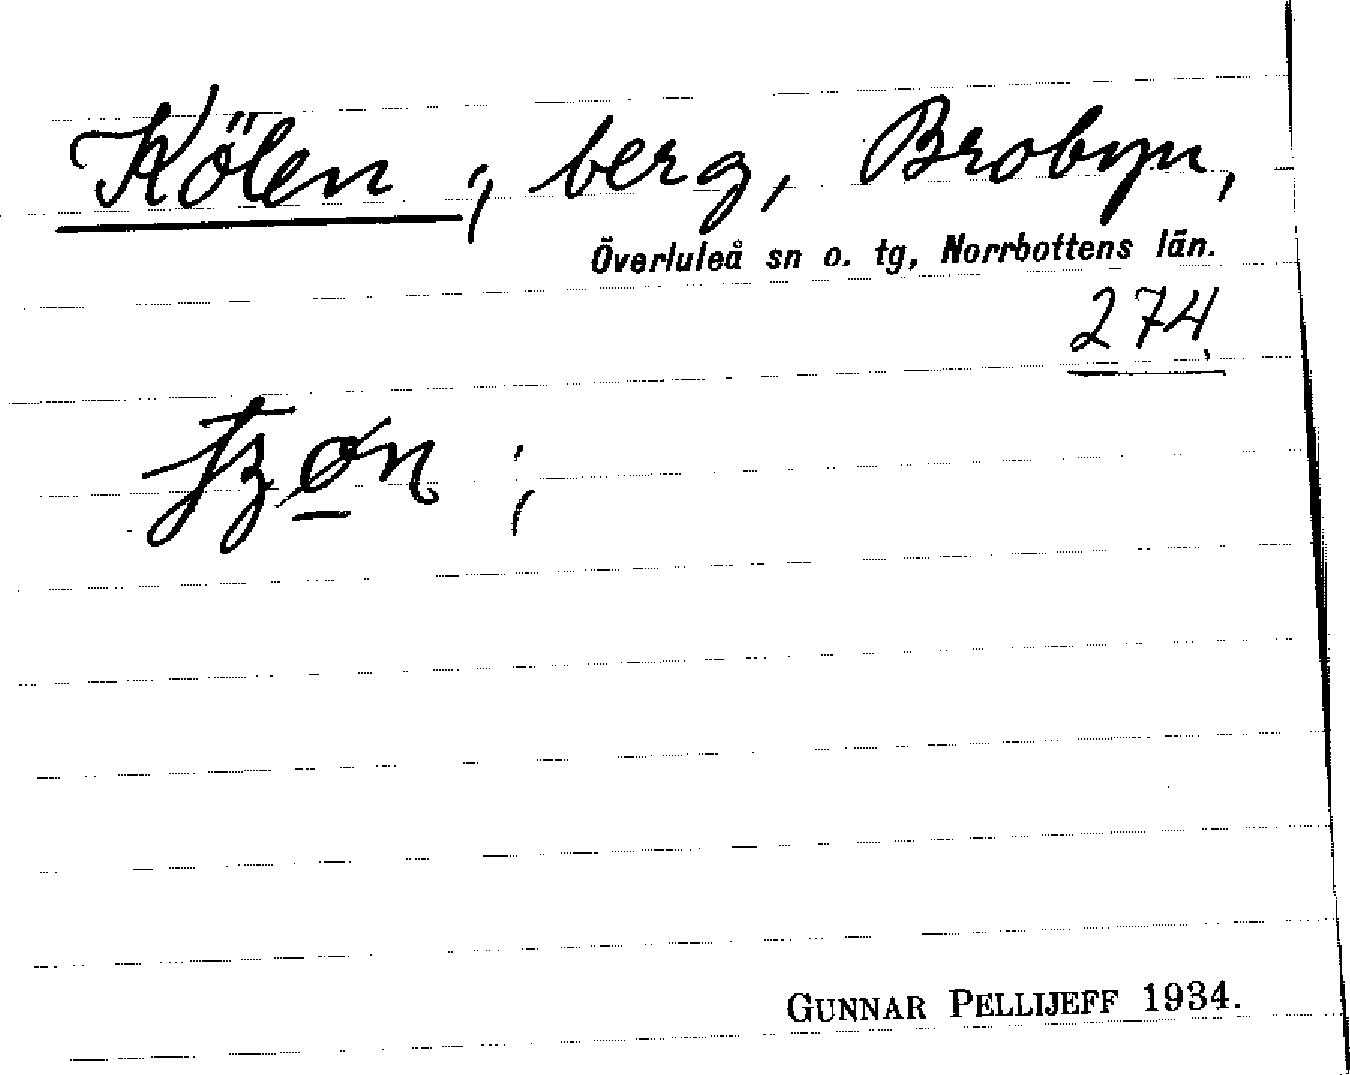 Kölen, berg, Brobyn,
Överluleå sn o. tg, Norrbottens län.
274
GUNNAR PELLIJEFF 1934.